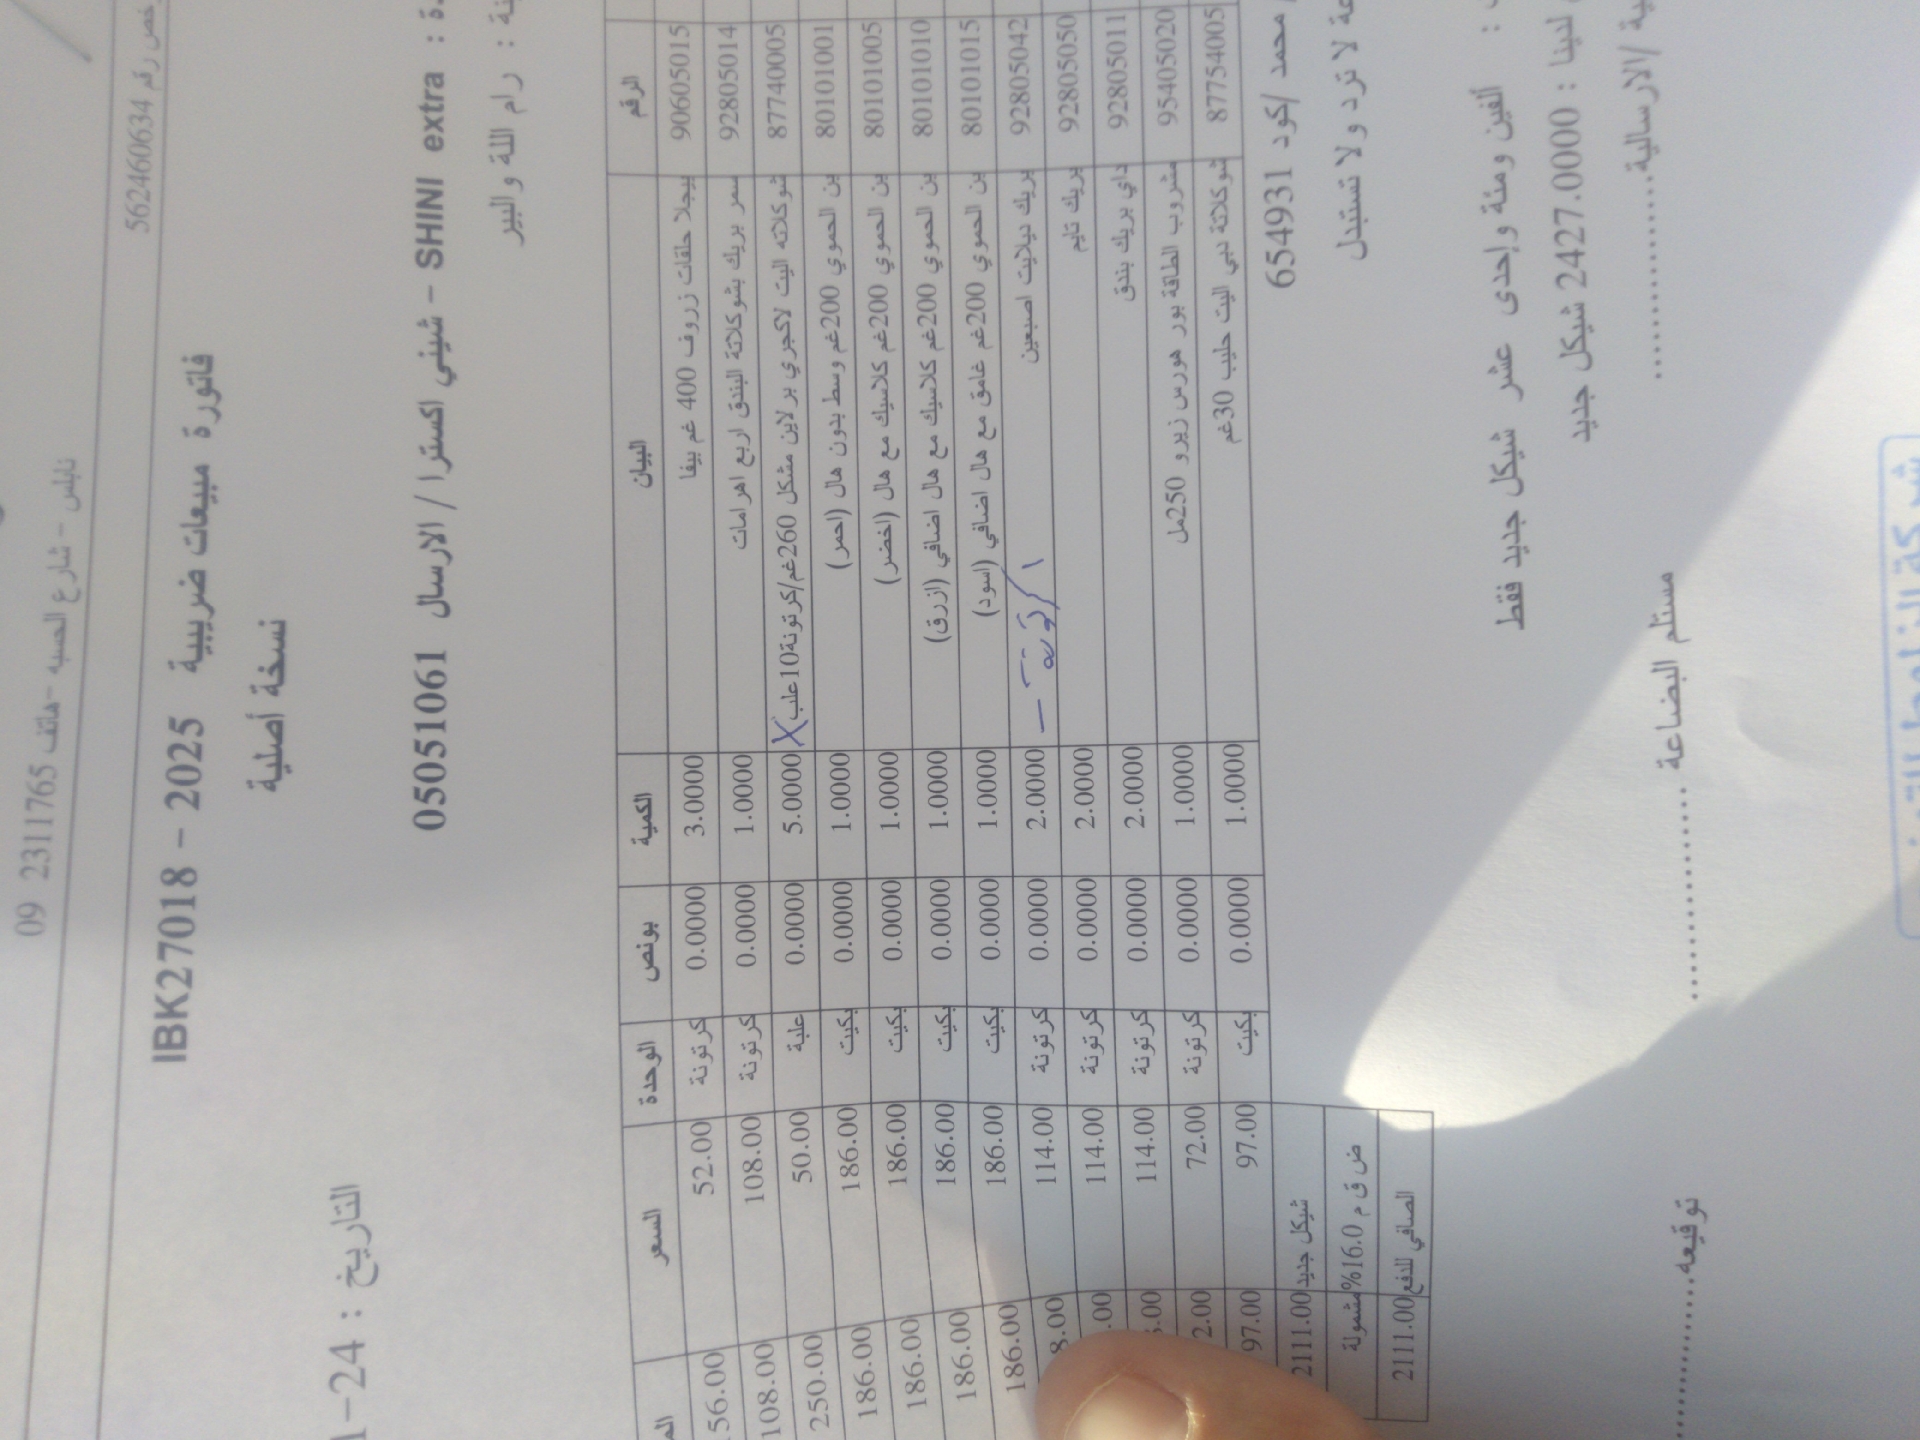 خص رقم 562460634
نابلس - شارع الحسبه - هاتف 2311765 09
فاتورة مبيعات ضريبية IBK27018 - 2025
نسخة أصلية
التاريخ : 24-1
ة : SHINI extra - شيني اكسترا / الارسال 05051061
ينة : رام الله والبير
الرقم البيان الكمية بونص الوحدة السعر الم
90605015 بيجلا حلقات زروف 400 غم بيفا 3.0000 0.0000 كرتونة 52.00 156.00
92805014 سمر بريك بشوكلاتة البندق اربع اهرامات 1.0000 0.0000 كرتونة 108.00 108.00
87740005 شوكلاته اليت لاكجري برلاين مشكل 260غم/كرتونة10علب X 5.0000 0.0000 علبة 50.00 250.00
80101001 بن الحموي 200غم وسط بدون هال (احمر) 1.0000 0.0000 بكيت 186.00 186.00
80101005 بن الحموي 200غم كلاسيك مع هال (اخضر) 1.0000 0.0000 بكيت 186.00 186.00
80101010 بن الحموي 200غم كلاسيك مع هال اضافي (ازرق) 1.0000 0.0000 بكيت 186.00 186.00
80101015 بن الحموي 200غم غامق مع هال اضافي (اسود) 1.0000 0.0000 بكيت 186.00 186.00
92805042 بريك ديلايت اصبعين 2.0000 0.0000 كرتونة 114.00 8.00
92805050 بريك تايم 2.0000 0.0000 كرتونة 114.00 .00
92805011 داي بريك بندق 2.0000 0.0000 كرتونة 114.00 .00
95405020 مشروب الطاقة بور هورس زيرو 250مل 1.0000 0.0000 كرتونة 72.00 2.00
87754005 شوكلاتة دبي اليت حليب 30غم 1.0000 0.0000 بكيت 97.00 97.00
محمد /كود 654931
شيكل جديد 2111.00
ض ق م 16.0% مشمولة
الصافي للدفع 2111.00
عة لا ترد ولا تستبدل
: ألفين ومئة وإحدى عشر شيكل جديد فقط
لدينا : 2427.0000 شيكل جديد
ية /الارسالية.............. مستلم البضاعة .................. توقيعه..................